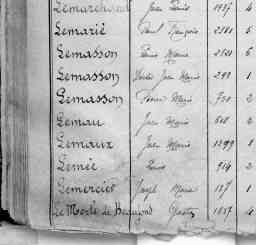 Lemarchand Jean Louis 1937 4
Lemarié Paul François 2381 5
Lemasson Marie 2520 6
Lemasson Jean Marie 299 1
Lemasson Pierre Marie 720 2
Lemau Jean Marie 508 2
Lemaux Jean Marie 1299 1
Lemée Louis 914 2
Lemercier Joseph Marie 137 1
Le Merle de Beaufond Gaston 1557 4